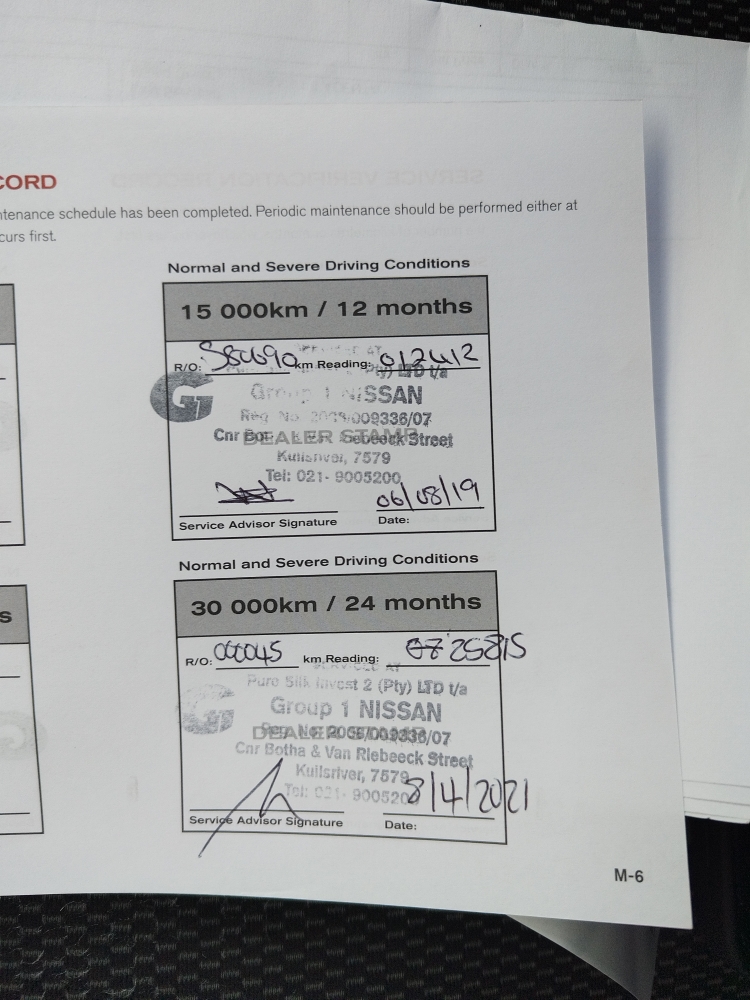 CORD
ntenance schedule has been completed. Periodic maintenance should be performed either at
curs first.
Normal and Severe Driving Conditions
15 000km / 12 months
R/O: km Reading: 012412
(Pty) LTD t/a
Group 1 NISSAN
Reg No. /009336/07
DEALER STAMP
Cnr Bot Riebeeck Street
Kuilsriver, 7579
Tel: 021- 9005200
06/08/19
Service Advisor Signature Date:
Normal and Severe Driving Conditions
30 000km / 24 months
s
R/O: 000045 km Reading:
SERVICED AT
Pure Silk Invest 2 (Pty) LTD t/a
Group 1 NISSAN
/009336/07
Cnr Botha & Van Riebeeck Street
Kuilsriver, 7579
Tel: 021- 9005200
8/4/2021
Service Advisor Signature Date:
M-6